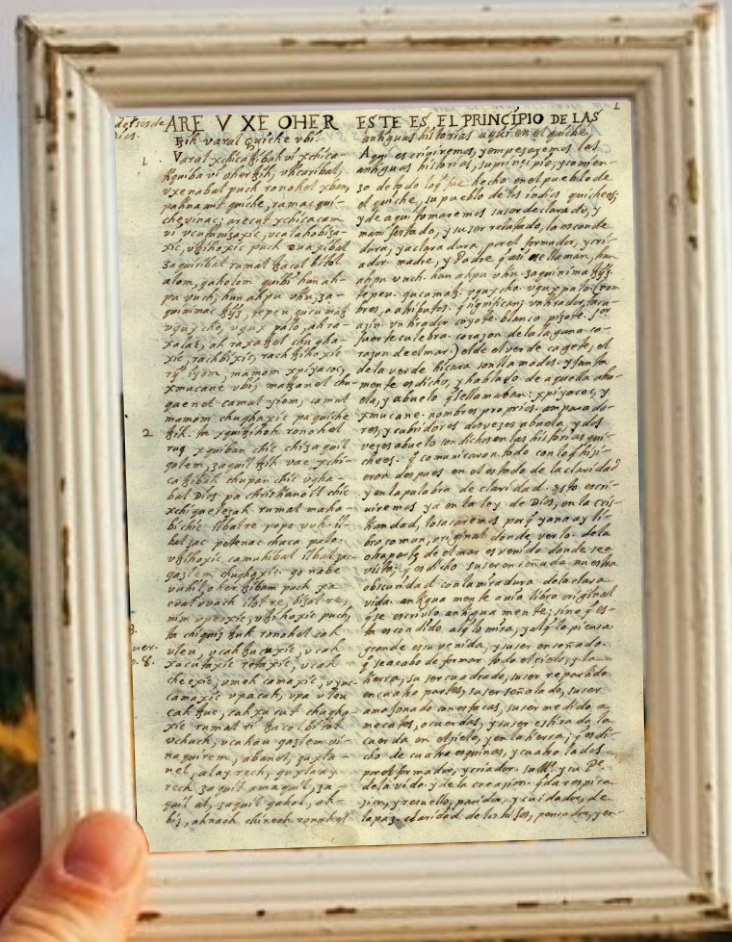 ARE V XE OHER
tzih varal Quiche vbi.
Varal xchicatzibah vi xchica-
tiquiba vi oher tzih, vticaribal,
vxenabal puch ronohel xban,
pa tinamit quiche, ramac qui-
che vinac; arecut xchicacam
vi vcutunizaxic, vcalahobiza-
xic, vtzihoxic puch euaxibal
zaquiribal rumal tzacol bitol
alom, qaholom quibi hunah-
pu vuch, hunahpu vtiu, za-
quinimac tzÿs, tepeu qucumatz
vqux cho, vqux palo, ah ra-
xalac, ah raxatzel chugha-
xic, rachbixic, rachtzihoxic
rij iyom, mamom xpiyacoc,
xmucane vbi, matzanel chu-
quenel camul iyom, camul
mamom chughaxic pa quiche
tzih. ta xquitzihoh ronohel
ruq xquiban chic chi zaquil
qolem, zaquil tzih vae xchi-
catzibah chupan chic vgha-
bal Dios pa christianoil chic
xchiquelezah rumal maha-
bi chic ilbalre popo vuh. il-
bal zac petenac chaca palo.
vtzihoxic camuhibal ilbal zac
qazlem chughaxic. qo nabe
vuhil, oher tzibam puch xa
eval vvach ilol re, bizol re,
nim vpeoxic, vtzihoxic puch,
ta chiquiz tzuk ronohel cah
vleu, vcah tzucuxic, vcah
xucutaxic retaxic, vcah
cheexic, vmeh camaxic, vyuc
camaxic vpa cah, vpa vleu
cah tzuc, cah xucut chugha-
xic rumal ri tzacol bitol
vchuch, vcahau qazlem vi-
naquirem, abanel, guxla-
nel, alay rech, guxlaay
rech zaquil amaquil, za-
quil al, zaquil qahol, ah-
biz, ahnaoh chirech ronohel
ESTE ES, EL PRINCÍPIO DE LAS
antiguas historias aquí en el quiché.
Aquí escriviremos, y empezaremos las
antiguas historias, su principio, y comien-
zo de todo lo que fue hecho en el pueblo de
el quiche, su pueblo de los indios quichees;
y de aqui tomaremos su ser declarado, y
manifestado, y su ser relatado, la esconde
dura, y aclaradura, por el formador, y cri-
ador. madre, y Padre q̃ así se llaman, hun
ahpu vuch. hun ahpu vtiu. zaquinima tzÿs.
tepeu. qucumatz. vqux cho. vqux palo. (nom
bres, o atributos. q̃ significan; vn tirador tacu-
azin. vn tirador coyote. blanco pizote. Sor
fuerte culebra. corazon de la laguna. co-
razon de el mar.) el de el verde cagete, el
de la verde hicara son llamados. y junta
mente es dicho, y hablado de aquella abu
ela, y abuelo q̃ se llamaban: xpiyacoc, y
xmucane. nombres proprios. amparado-
res, y cubridores dos vezes abuela, y dos
vezes abuelo son dichos en las historias qui-
chees. q̃ comunicaron todo con lo q̃ hizi-
eron despues en el estado de la claridad
y en la palabra de claridad. Esto escri-
viremos ya en la ley de Dios, en la cris-
tiandad, lo sacaremos, porq̃ ya no ay li-
bro comun, original donde verlo. de la
otra parte de el mar es venido donde se a
visto; q̃ es dicho su ser enseñada nuestra
obscuridad con la miradura de la clara
vida. antiguamente avia libro original
q̃ se escrivio antiguamente; sino q̃ es-
ta escondido al q̃ lo mira, y al q̃ lo piensa
grande es su venida, y su ser enseñado.
q̃ se acabo de formar todo el cielo, y la
tierra, su ser cuadrado, su ser repartido
en cuatro partes, su ser señalado, su ser
amojonado con estacas, su ser medido a
mecates, o cuerdas, y su ser estirada la
cuerda en el cielo, y en la tierra; q̃ es di-
cho de cuatro esquinas, y cuatro lados
por el formador, y criador. su Me. y su Pe.
de la vida, y de la creazion. q̃ da respira-
zion, y resuello, paridora, y cuidador, de
la paz. claridad de los hijos, pensador, y en-